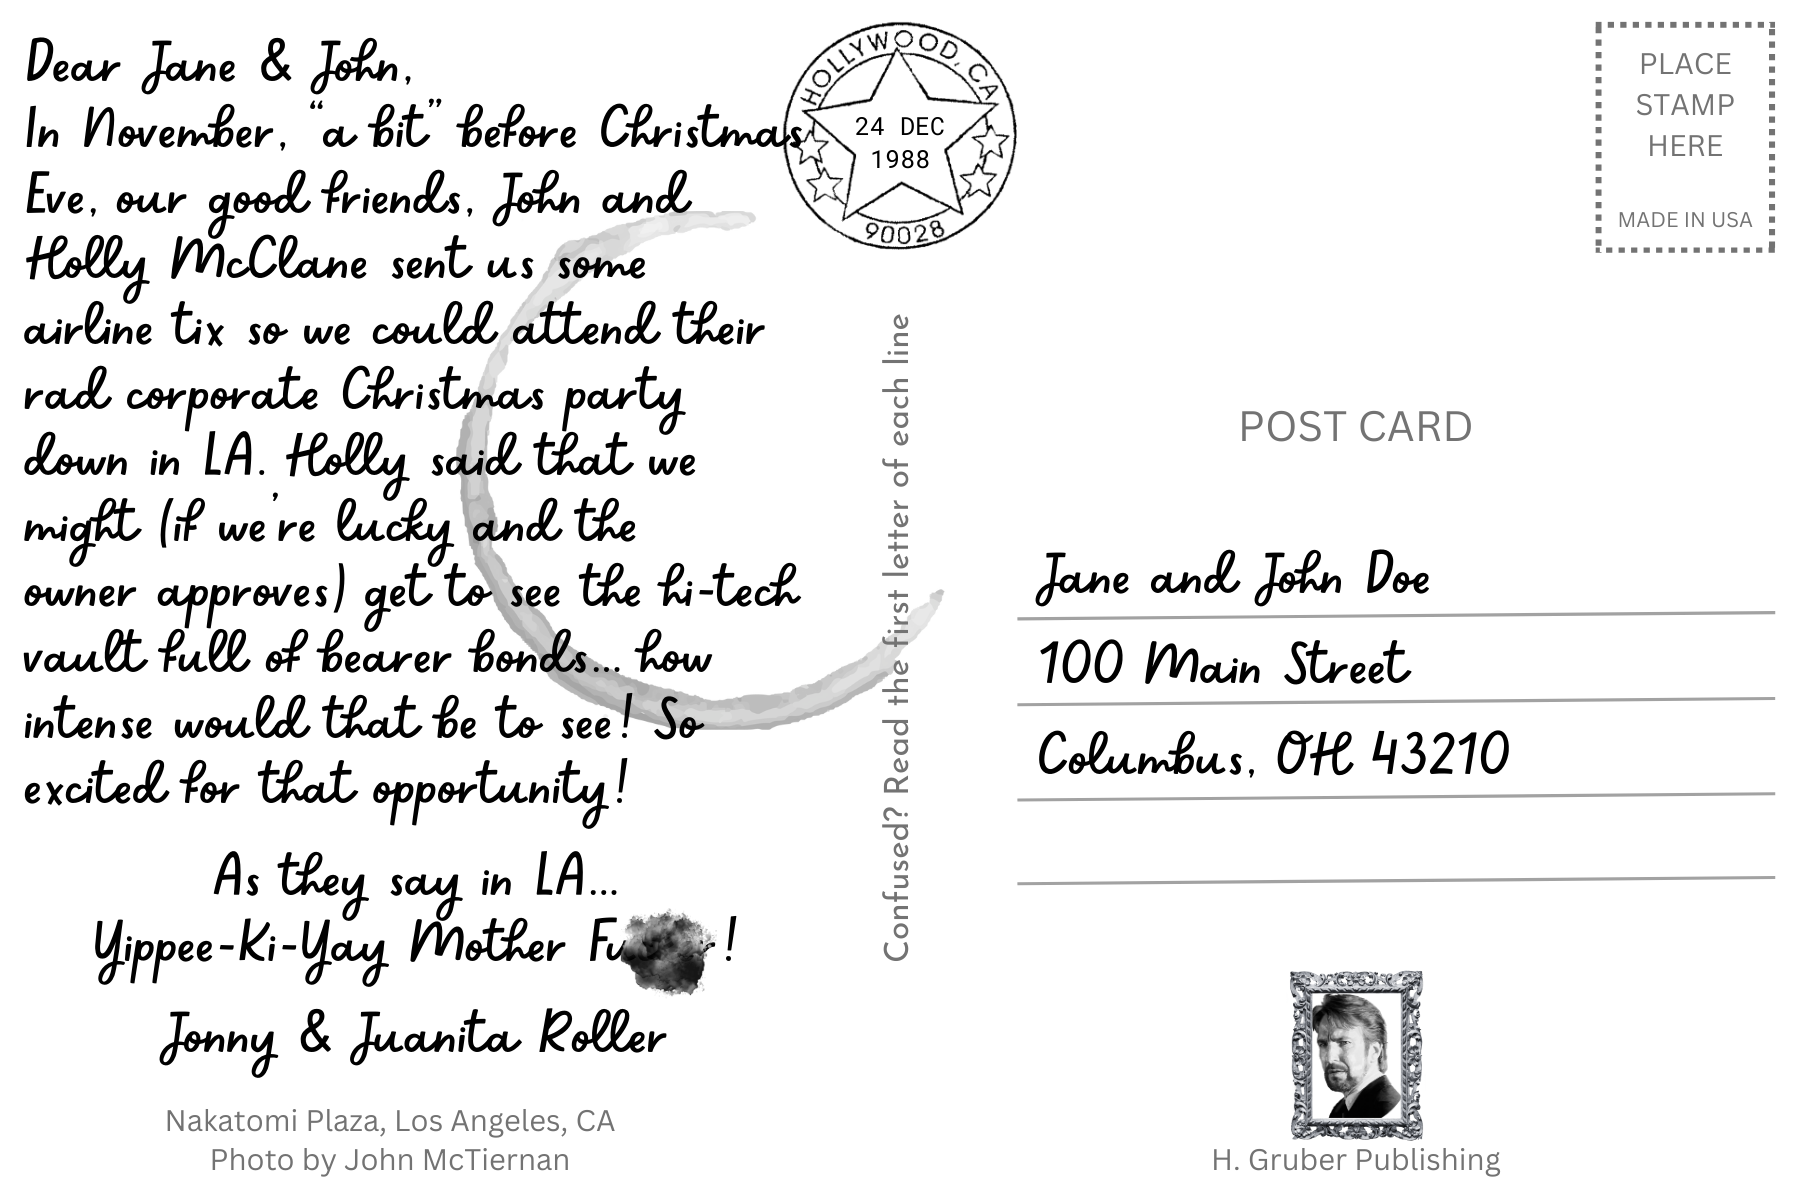 Dear Jane & John,
In November, “a bit” before Christmas
Eve, our good friends, John and
Holly McClane sent us some
airline tix so we could attend their
rad corporate Christmas party
down in LA. Holly said that we
might (if we’re lucky and the
owner approves) get to see the hi-tech
vault full of bearer bonds... how
intense would that be to see! So
excited for that opportunity!
As they say in LA...
Yippee-Ki-Yay Mother !
Jonny & Juanita Roller
Nakatomi Plaza, Los Angeles, CA
Photo by John McTiernan
HOLLYWOOD, CA
24 DEC
1988
90028
Confused? Read the first letter of each line
PLACE
STAMP
HERE
MADE IN USA
POST CARD
Jane and John Doe
100 Main Street
Columbus, OH 43210
H. Gruber Publishing